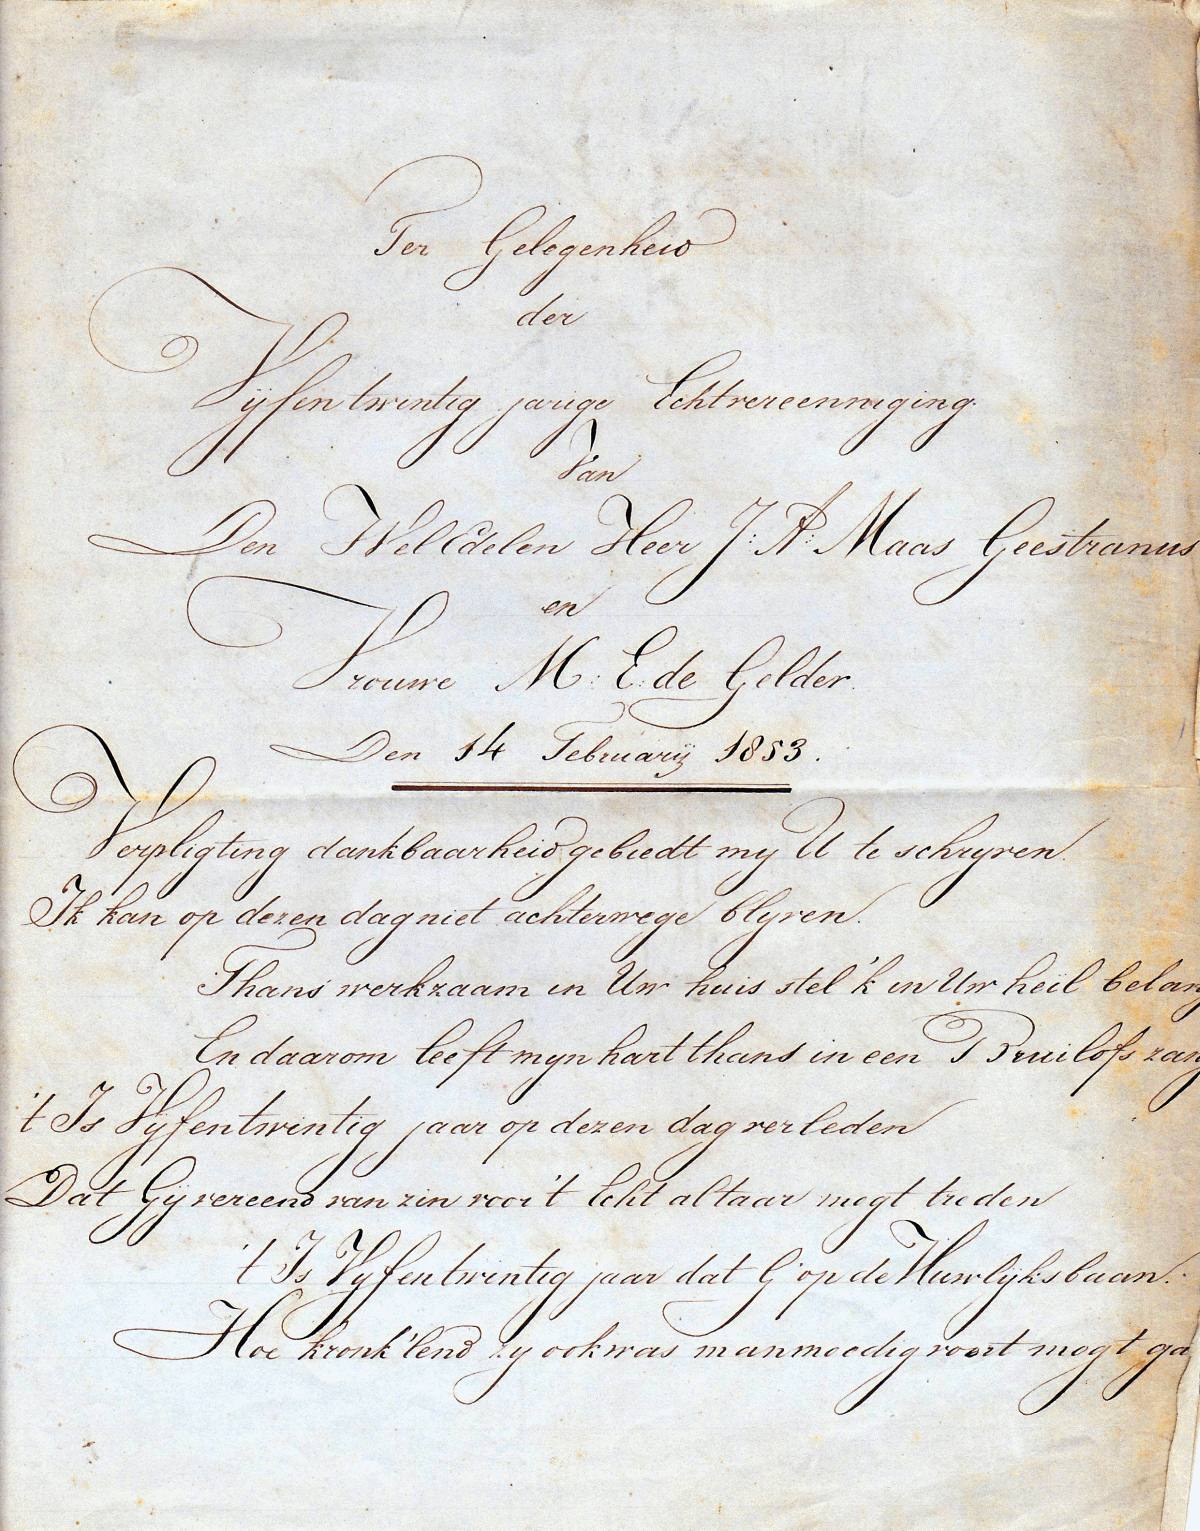 Ter Gelegenheid
der
Vijfentwintig jarige Echtvereenniging
Van
Den WelEdelen Heer J: A: Maas Geestranus
en
Vrouwe M: E: de Gelder.
Den 14 Februarij 1853.
Verpligting dankbaarheid gebiedt my U te schryven.
Ik kan op dezen dag niet achterwege blyven.
Thans werkzaam in Uw huis stel 'k in Uw heil belang
En daarom leeft myn hart thans in een Bruilofs zang
't Is Vyfentwintig jaar op dezen dag verleden
Dat Gij vereend van zin voor 't Echt altaar mogt treden
't Is Vyfentwintig jaar dat G' op de Huwlijksbaan.
Hoe kronk'lend zy ook was manmoedig voort mogt ga